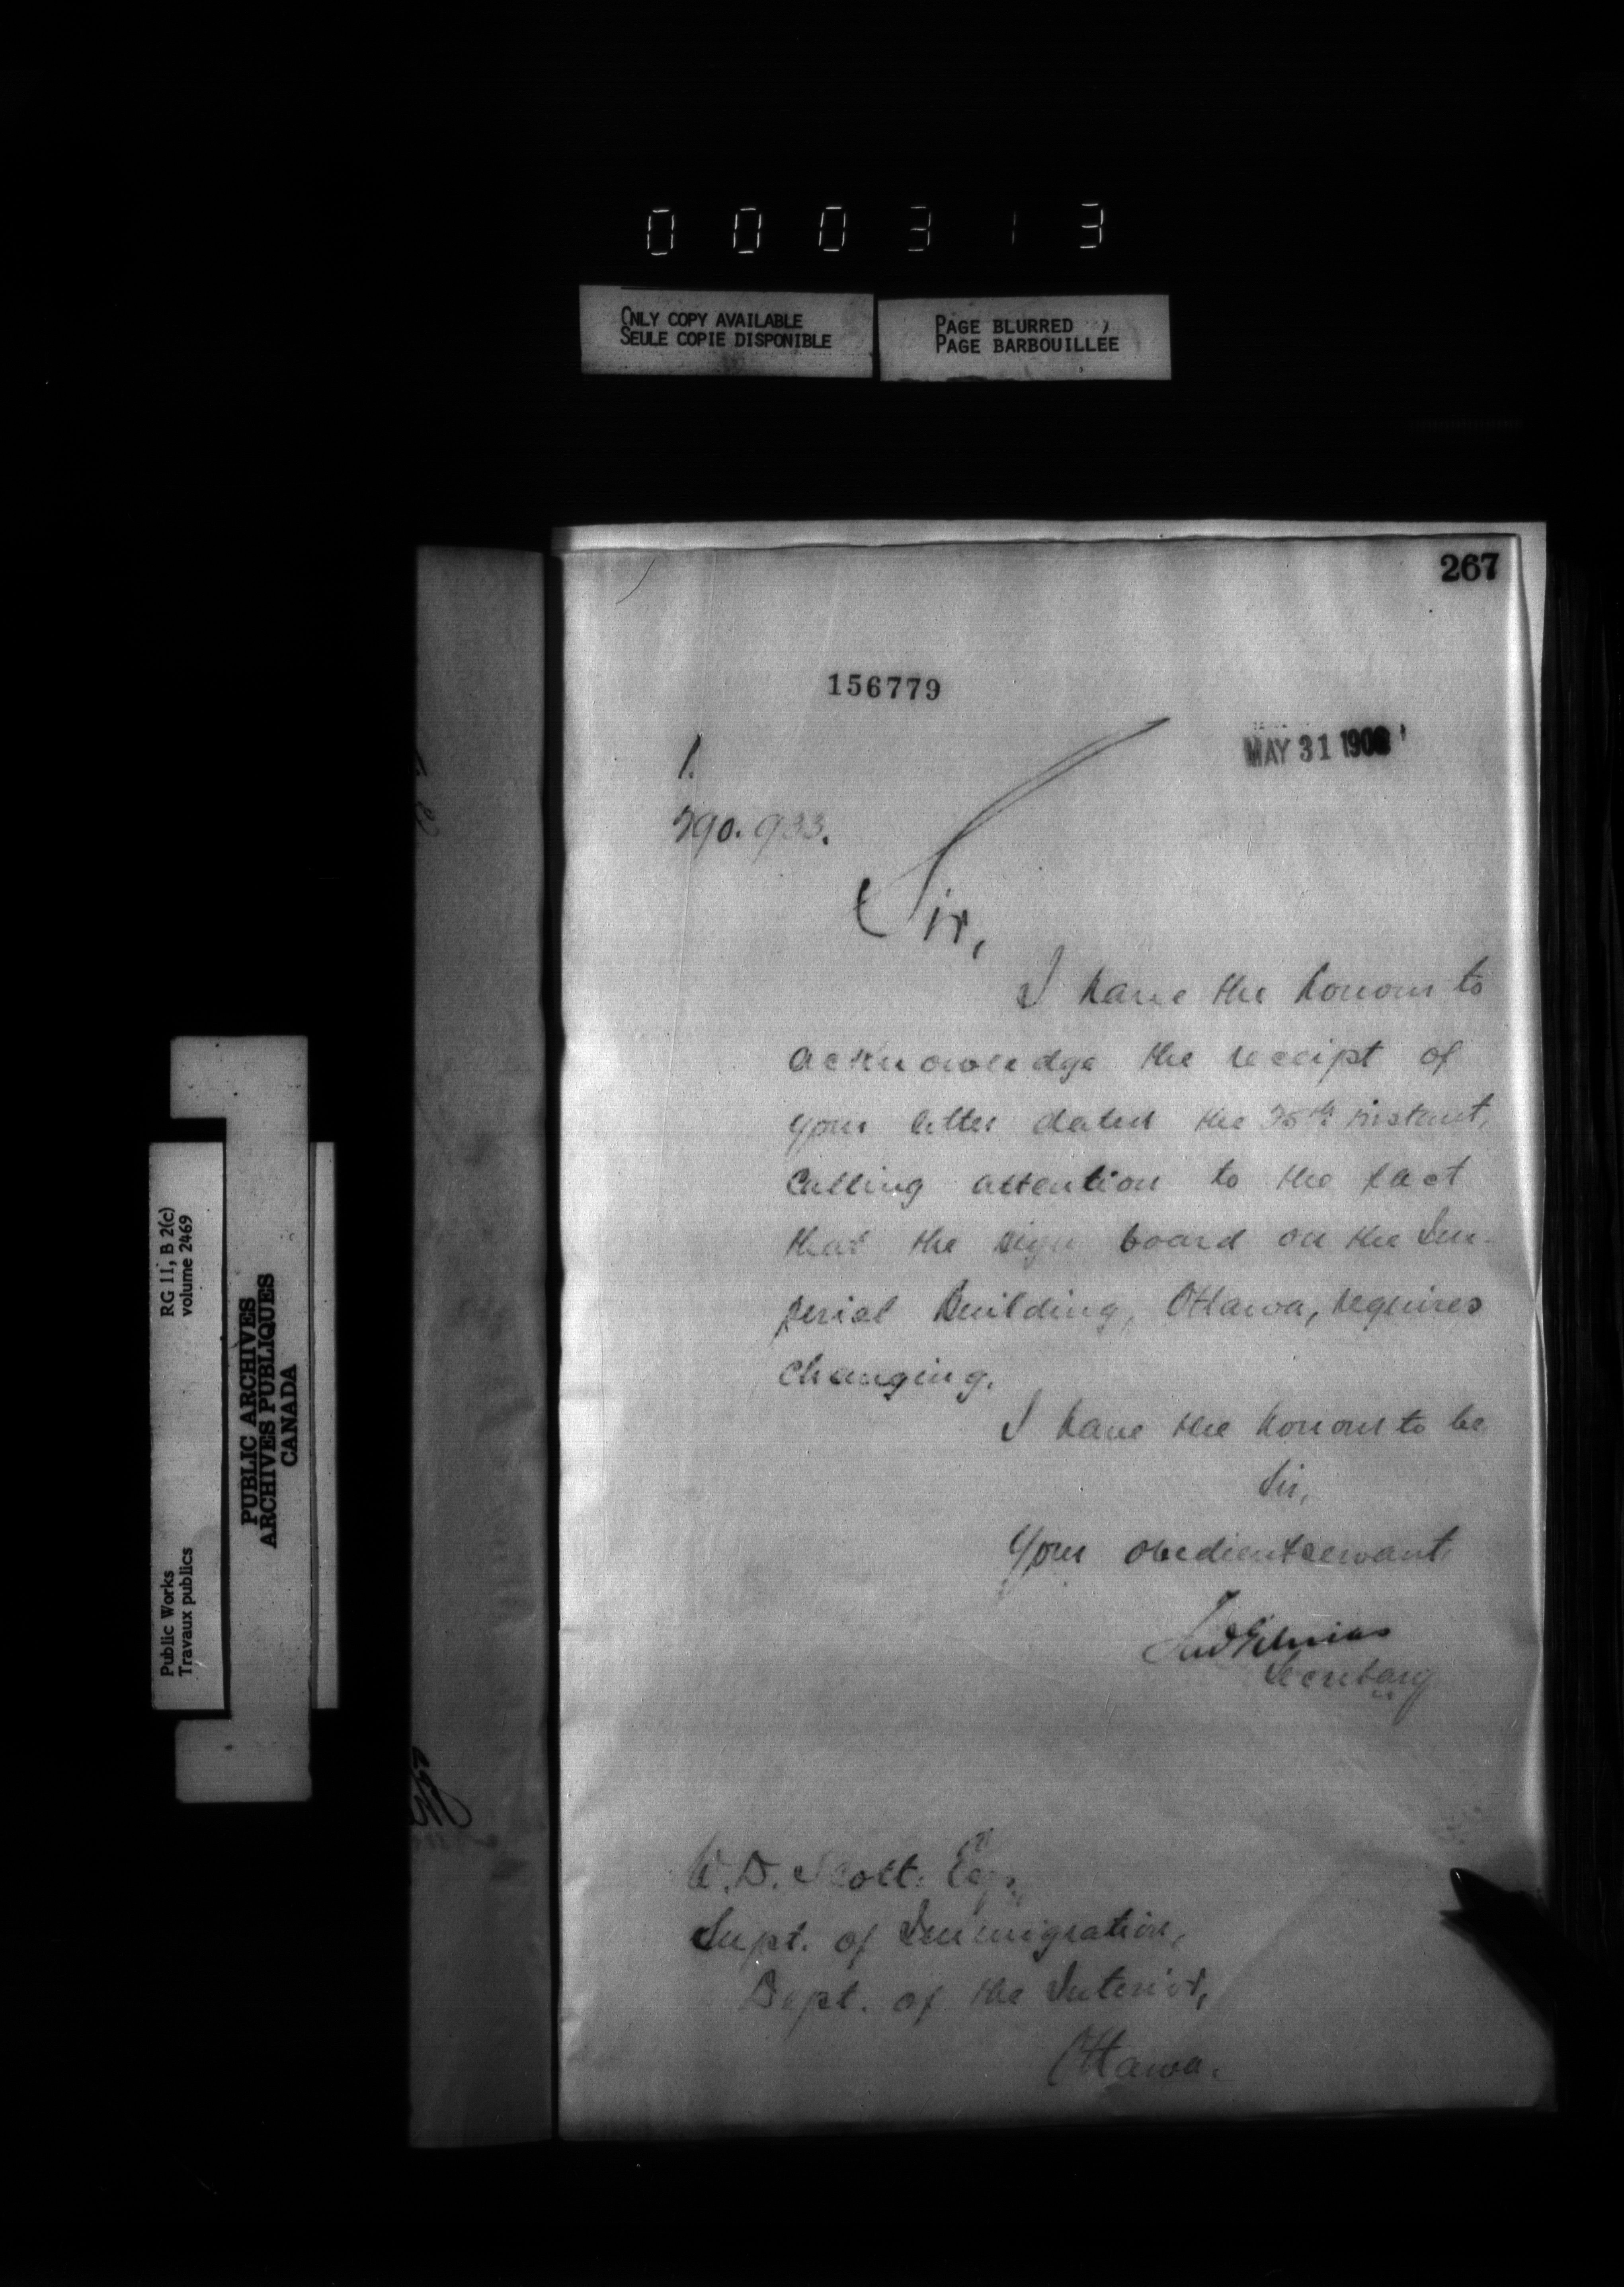 000313
ONLY COPY AVAILABLE
SEULE COPIE DISPONIBLE
PAGE BLURRED
PAGE BARBOUILLÉE
267
156779
MAY 31 190
1.
290.933.
Sir,
I have the honour to
acknowledge the receipt of
your letter dated the 25th instant,
calling attention to the fact
that the sign board on the Im-
perial Building, Ottawa, requires
changing.
I have the honour to be
Sir,
Your obedient servant,
Secretary
W. D. Scott, Esq.,
Supt. of Immigration,
Dept. of the Interior,
Ottawa.
RG 11, B 2(c)
volume 2469
PUBLIC ARCHIVES
ARCHIVES PUBLIQUES
CANADA
Public Works
Travaux publics